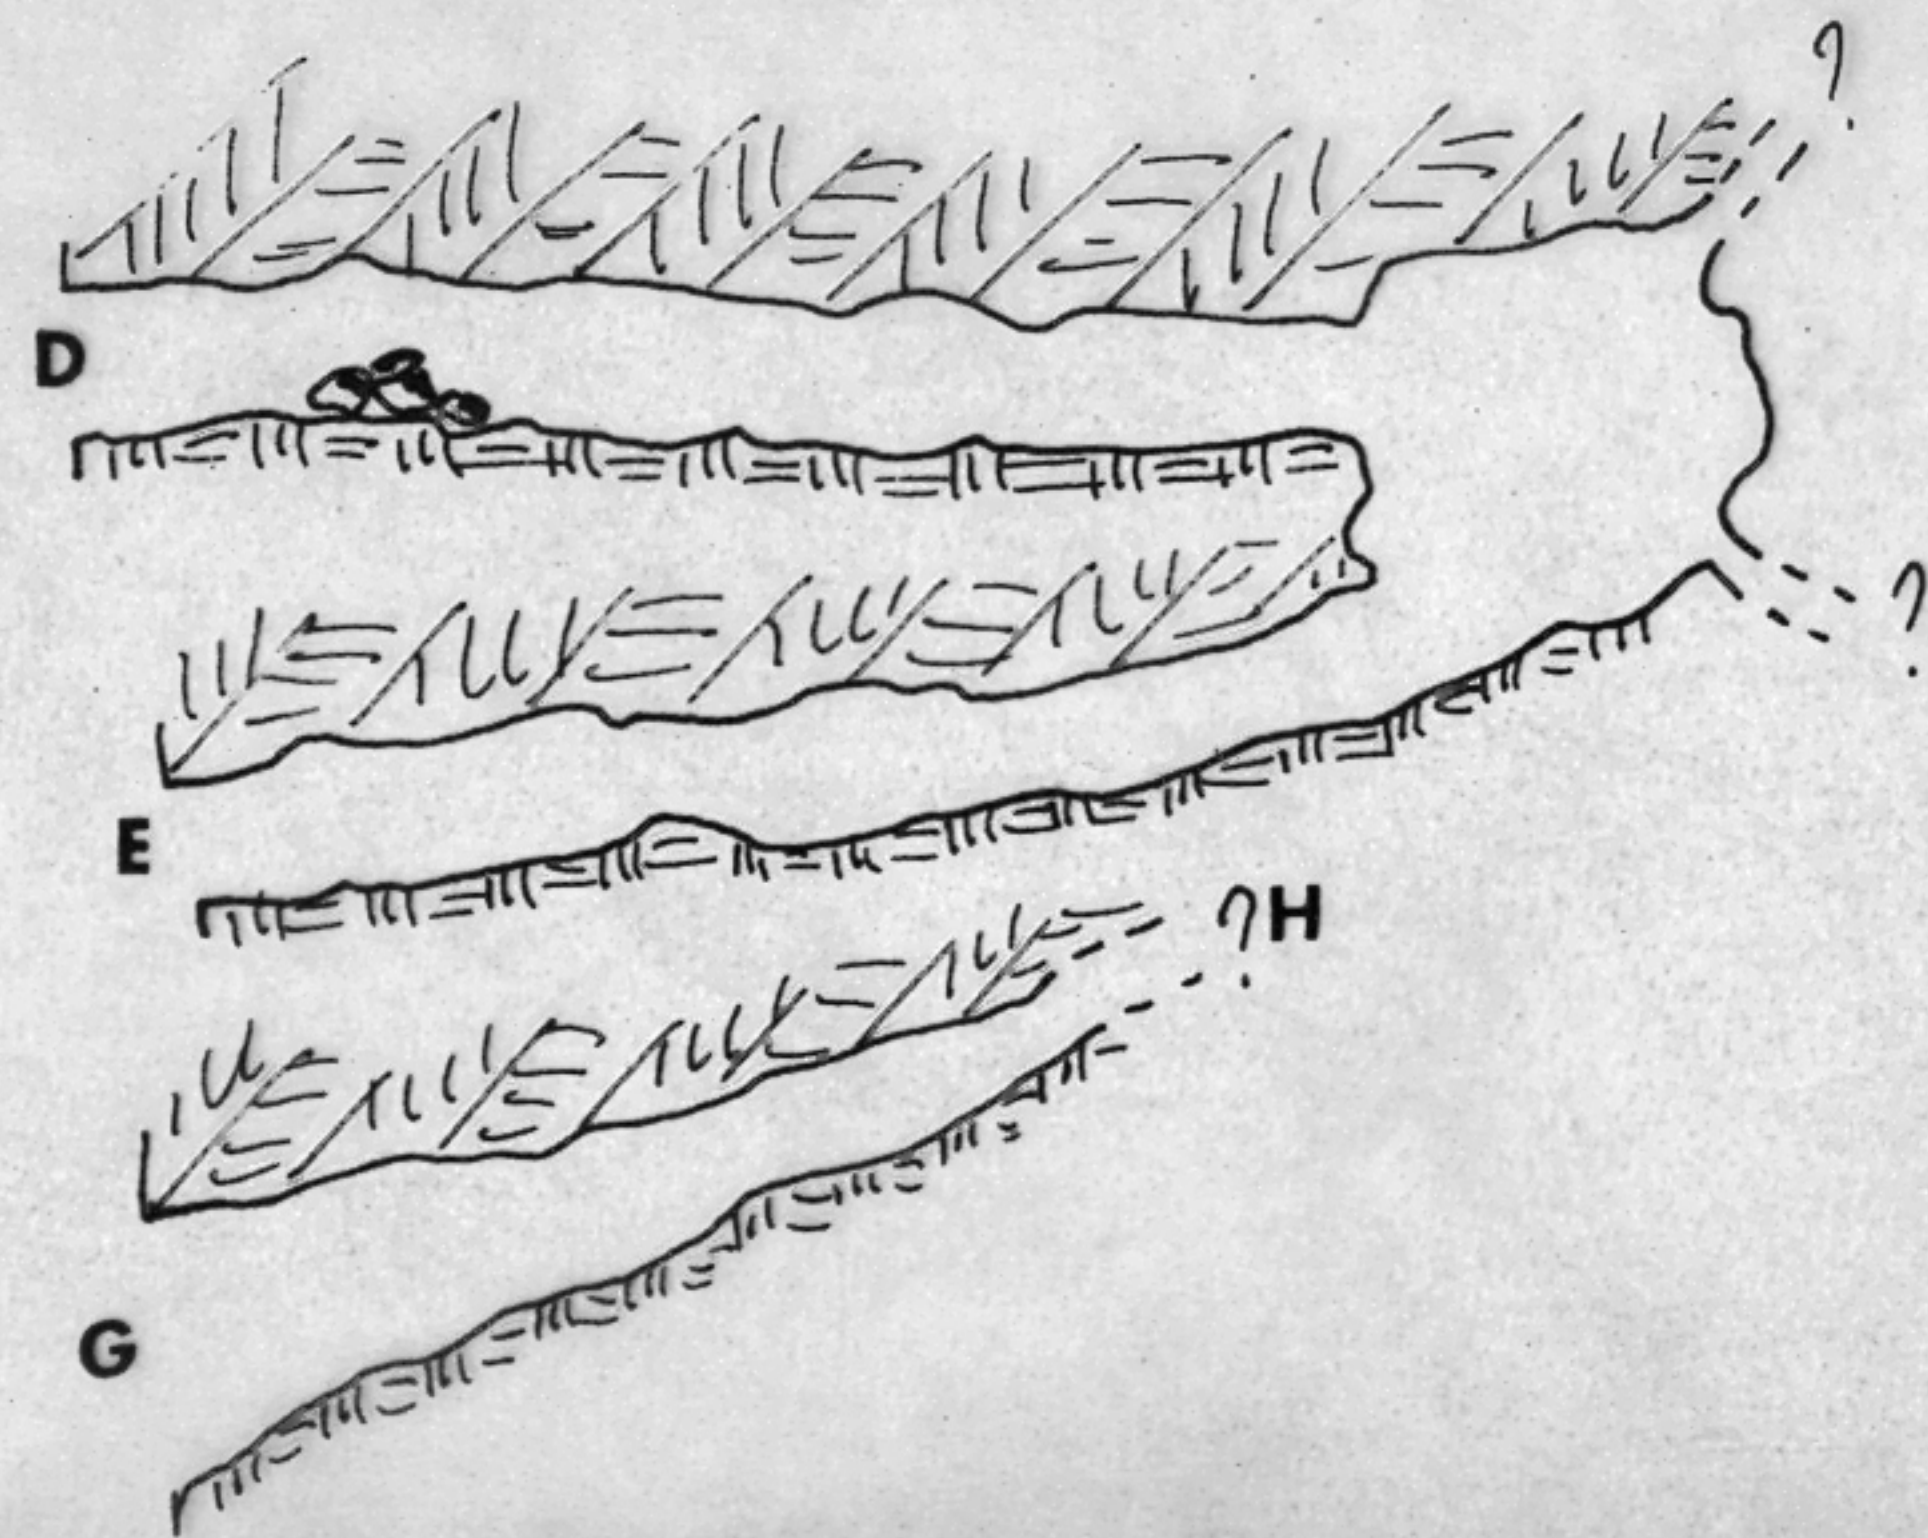 ?
D
?
E
? H
G